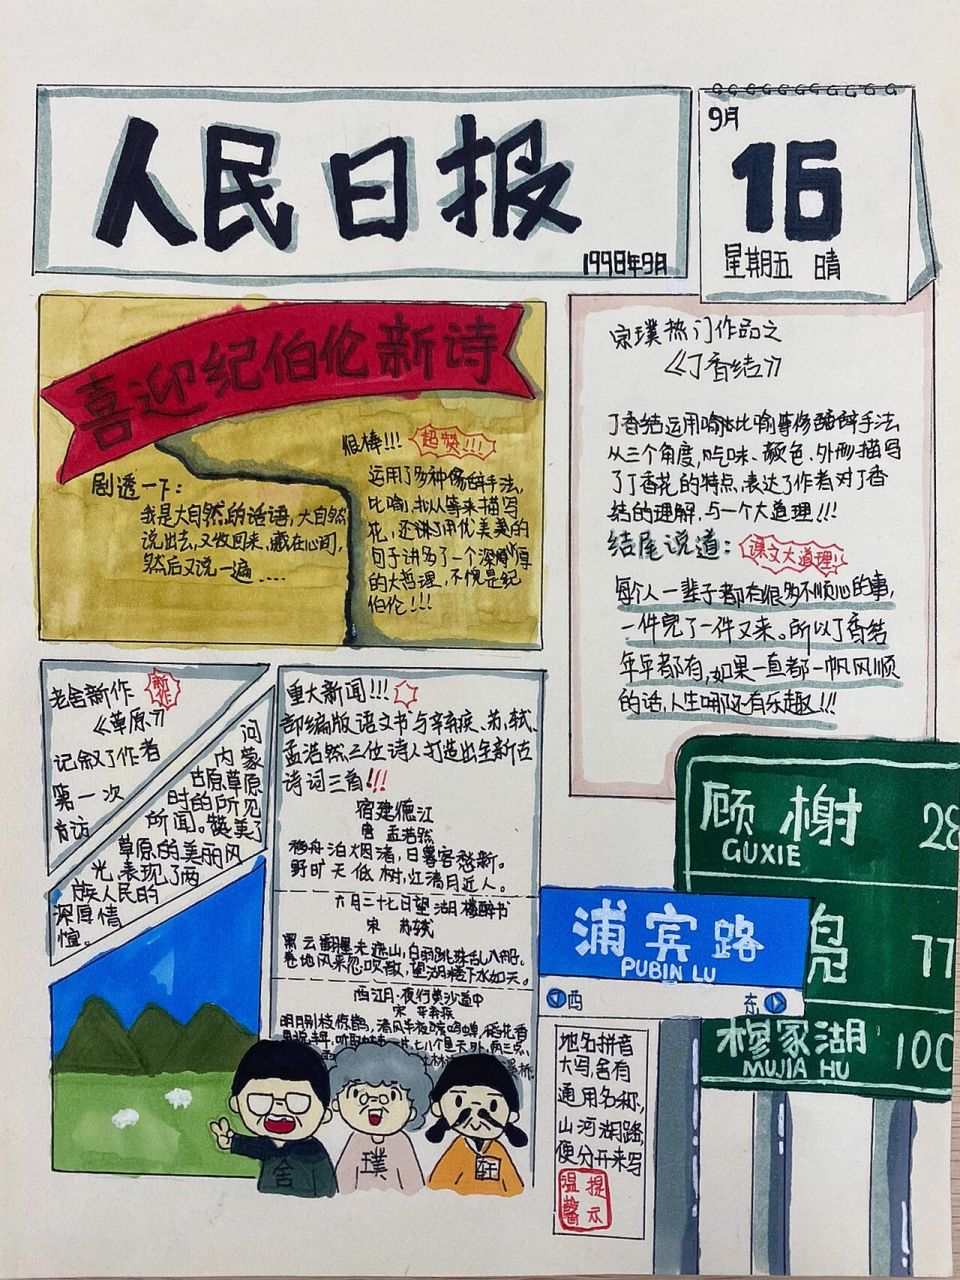 人民日报
1998年9月
9月
16
星期五 晴
喜迎纪伯伦新诗
剧透一下:
我是大自然的话语,大自然
说出去,又收回来,藏在心间,
然后又说一遍....
很棒!!! 超赞!!!
运用了多种修辞手法,
比喻,拟人等来描写
花,还讲了用优美的
句子讲多了一个深厚
的大哲理,不愧是纪
伯伦!!!
宗璞热门作品之
《丁香结》
丁香结运用喻比喻等修辞手法
从三个角度,气味、颜色、外形描写
了丁香花的特点,表达了作者对丁香
结的理解,与一个大道理!!!
结尾说道: 课文大道理!
每个人一辈子都有很多不顺心的事,
一件完了一件又来。所以丁香结
年年都有,如果一直都一帆风顺
的话,人生哪还有乐趣!!!
老舍新作 新作
《草原》
记叙了作者
第一次
访
问
内蒙
古原草原
时的所见
所闻。赞美了
草原的美丽风
光,表现了两
族人民的
深厚情
谊。
重大新闻!!!
部编版语文书与辛弃疾、苏轼、
孟浩然三位诗人打造出全新古
诗词三首!!!
宿建德江
唐 孟浩然
移舟泊烟渚,日暮客愁新。
野旷天低树,江清月近人。
六月二十七日望湖楼醉书
宋 苏轼
黑云翻墨未遮山,白雨跳珠乱入船。
卷地风来忽吹散,望湖楼下水如天。
西江月·夜行黄沙道中
宋 辛弃疾
明月别枝惊鹊,清风半夜鸣蝉,稻花香
里说丰年,听取蛙声一片,七八个星天外,两三点
溪桥
舍
璞
轩
顾榭 28
GUXIE
77
穆家湖 100
MUJIA HU
浦宾路
PUBIN LU
西 东
地名拼音
大写,名有
通用名称,
山河湖路,
便分开来写
温馨提示